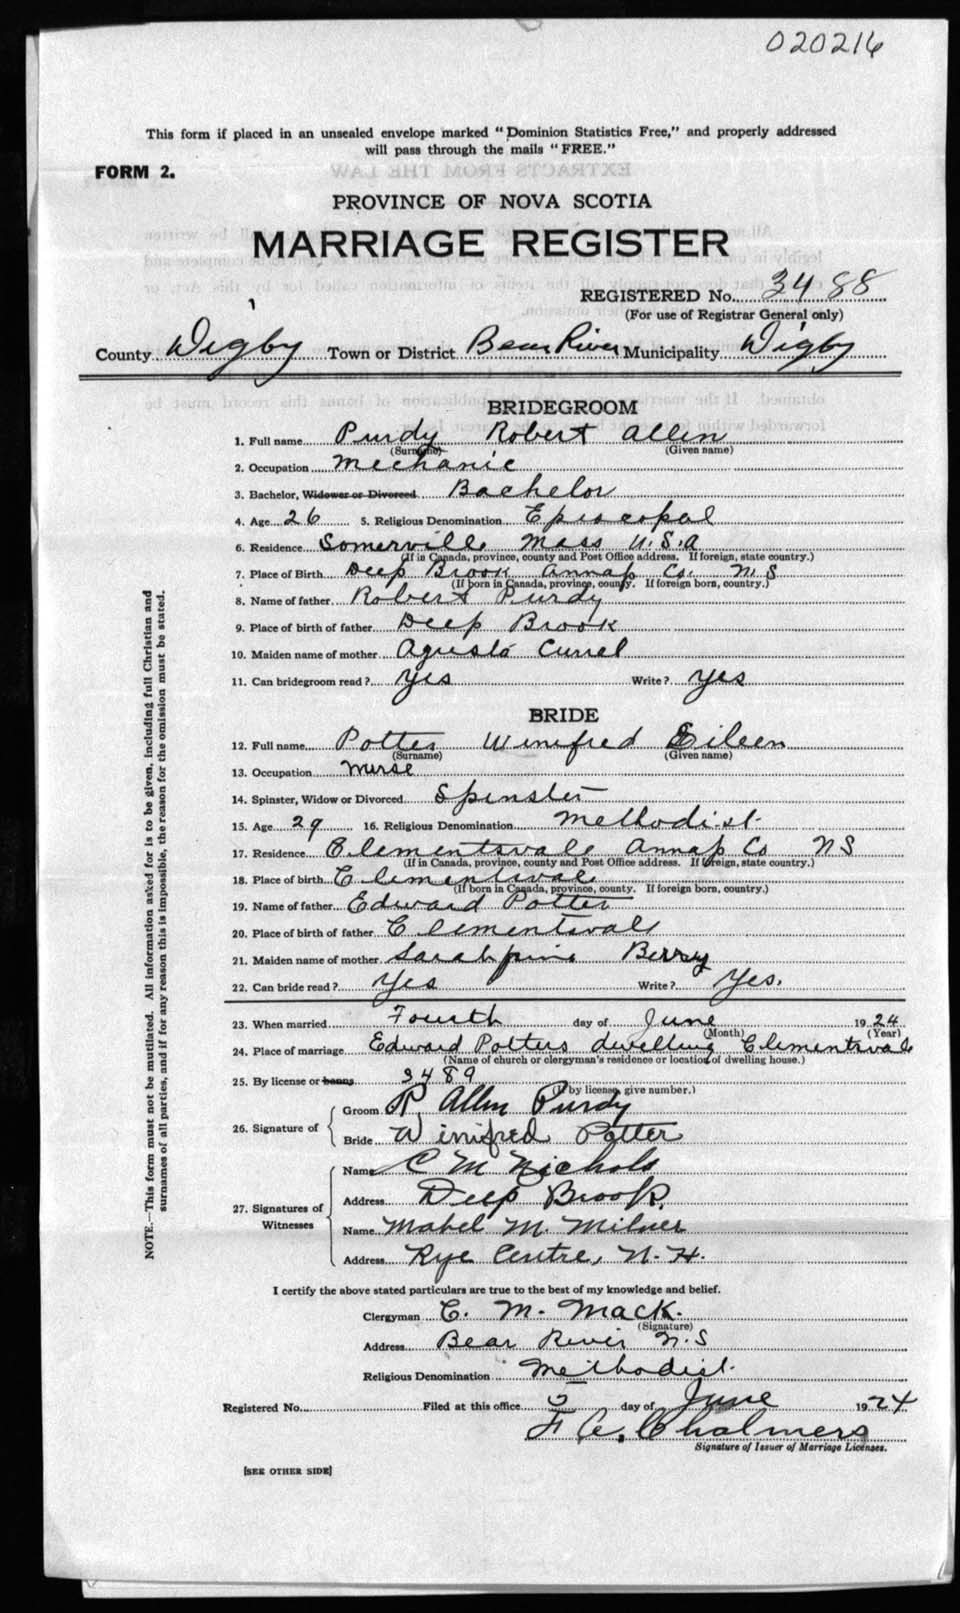 020216
This form if placed in an unsealed envelope marked "Dominion Statistics Free," and properly addressed
will pass through the mails "FREE."
FORM 2.
PROVINCE OF NOVA SCOTIA
MARRIAGE REGISTER
REGISTERED No. 3488
(For use of Registrar General only)
County Digby Town or District Bear River Municipality Digby
BRIDEGROOM
1. Full name Purdy Robert Allen
(Surname) (Given name)
2. Occupation Mechanic
3. Bachelor, Widower or Divorced Bachelor
4. Age 26 5. Religious Denomination Episcopal
6. Residence Somerville Mass U.S.A
(If in Canada, province, county and Post Office address. If foreign, state country.)
7. Place of Birth Deep Brook Annap Co. N.S
(If born in Canada, province, county. If foreign born, country.)
8. Name of father Robert Purdy
9. Place of birth of father Deep Brook
10. Maiden name of mother Agusta Currel
11. Can bridegroom read? Yes Write? Yes
BRIDE
12. Full name Potter Winifred Eileen
(Surname) (Given name)
13. Occupation Nurse
14. Spinster, Widow or Divorced Spinster
15. Age 29 16. Religious Denomination Methodist
17. Residence Clementsvale Annap Co NS
(If in Canada, province, county and Post Office address. If foreign, state country.)
18. Place of birth Clementsvale
(If born in Canada, province, county. If foreign born, country.)
19. Name of father Edward Potter
20. Place of birth of father Clementsvale
21. Maiden name of mother Berry
22. Can bride read? Yes Write? Yes.
23. When married Fourth day of June 1924
(Month) (Year)
24. Place of marriage Edward Potters dwelling Clementsvale
(Name of church or clergyman's residence or location of dwelling house.)
25. By license or banns 3489
(If by license, give number.)
26. Signature of
Groom R. Allen Purdy
Bride Winifred Potter
27. Signatures of Witnesses
Name C M Nichols
Address Deep Brook.
Name Mabel M. Milner
Address Rye Centre, N.H.
I certify the above stated particulars are true to the best of my knowledge and belief.
Clergyman C. M. Mack.
(Signature)
Address Bear River N.S
Religious Denomination Methodist.
Registered No. Filed at this office 5 day of June 1924
F A. Chalmers
Signature of Issuer of Marriage Licenses.
[SEE OTHER SIDE]
NOTE.—This form must not be mutilated. All information asked for is to be given, including full Christian and
surnames of all parties, and if for any reason this is impossible, the reason for the omission must be stated.